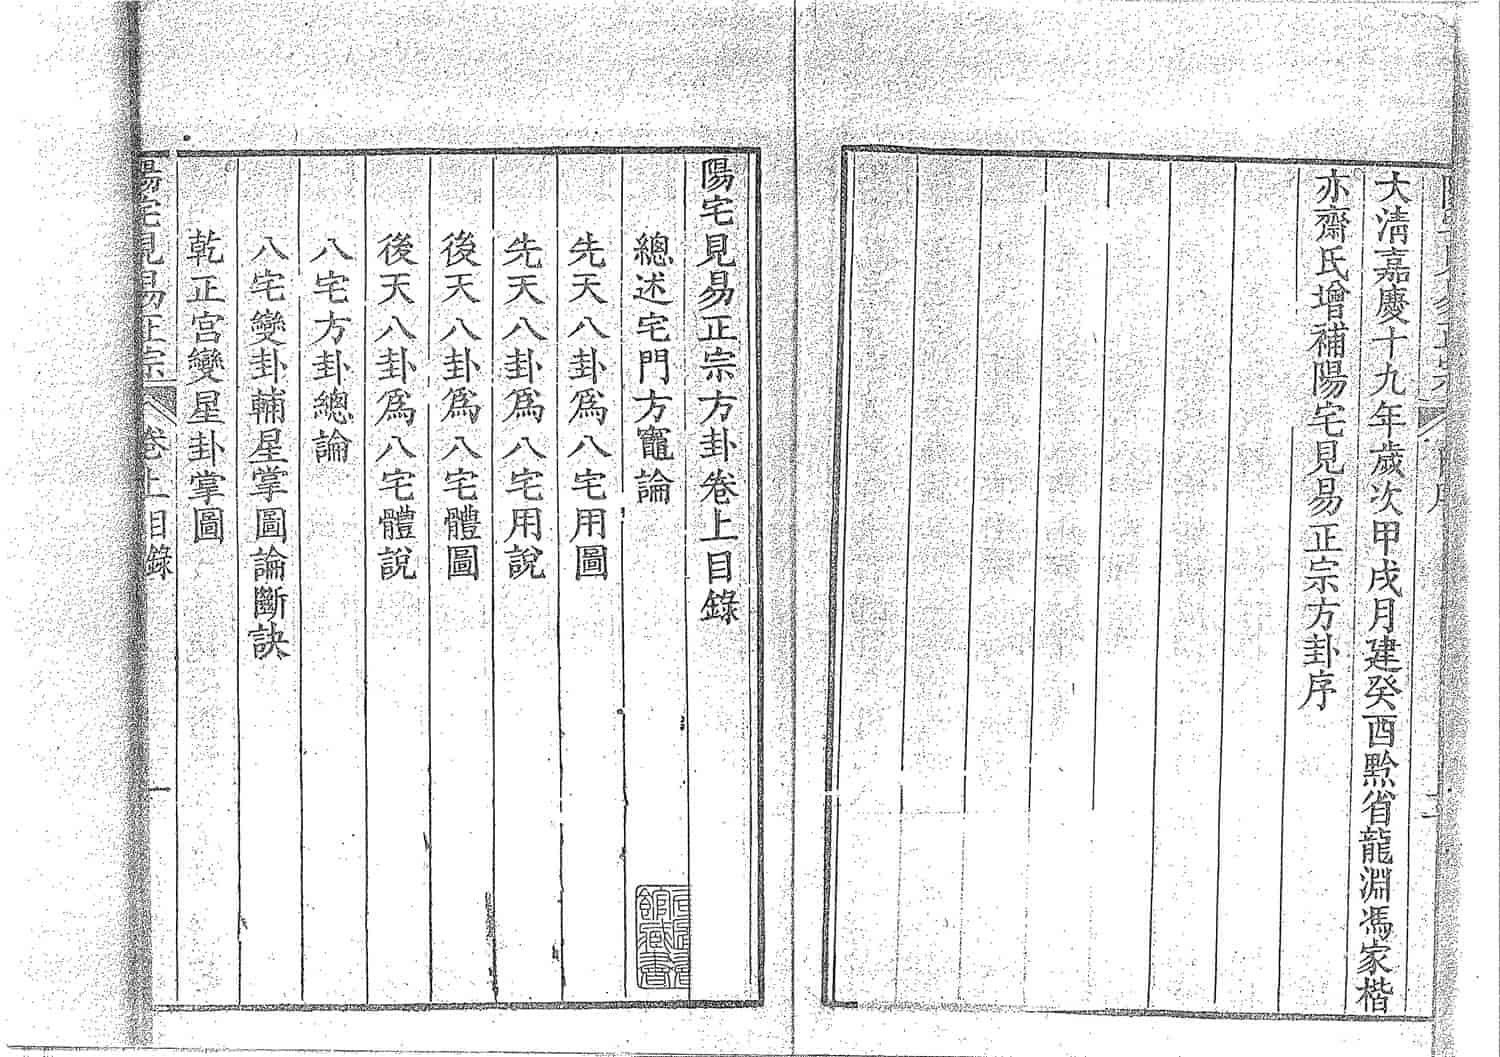 大淸嘉慶十九年歲次甲戌月建癸酉黔省龍淵馮家楷
亦齋氏增補陽宅見易正宗方卦序
陽宅見易正宗方卦卷上目錄
總述宅門方竈論
先天八卦爲八宅用圖
先天八卦爲八宅用說
後天八卦爲八宅體圖
後天八卦爲八宅體說
八宅方卦總論
八宅變卦輔星掌圖論斷訣
乾正宮變星卦掌圖
陽宅見易正宗 卷上目錄 一